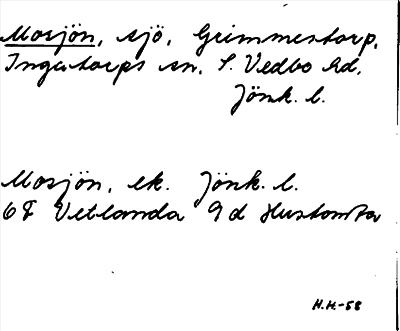 Mosjön, sjö, Grimmestorp,
Ingatorps sn, S. Vedbo hd,
Jönk. l.
Mosjön, ek. Jönk. l.
6F Vetlanda 9d Hustomta
H.H.-58